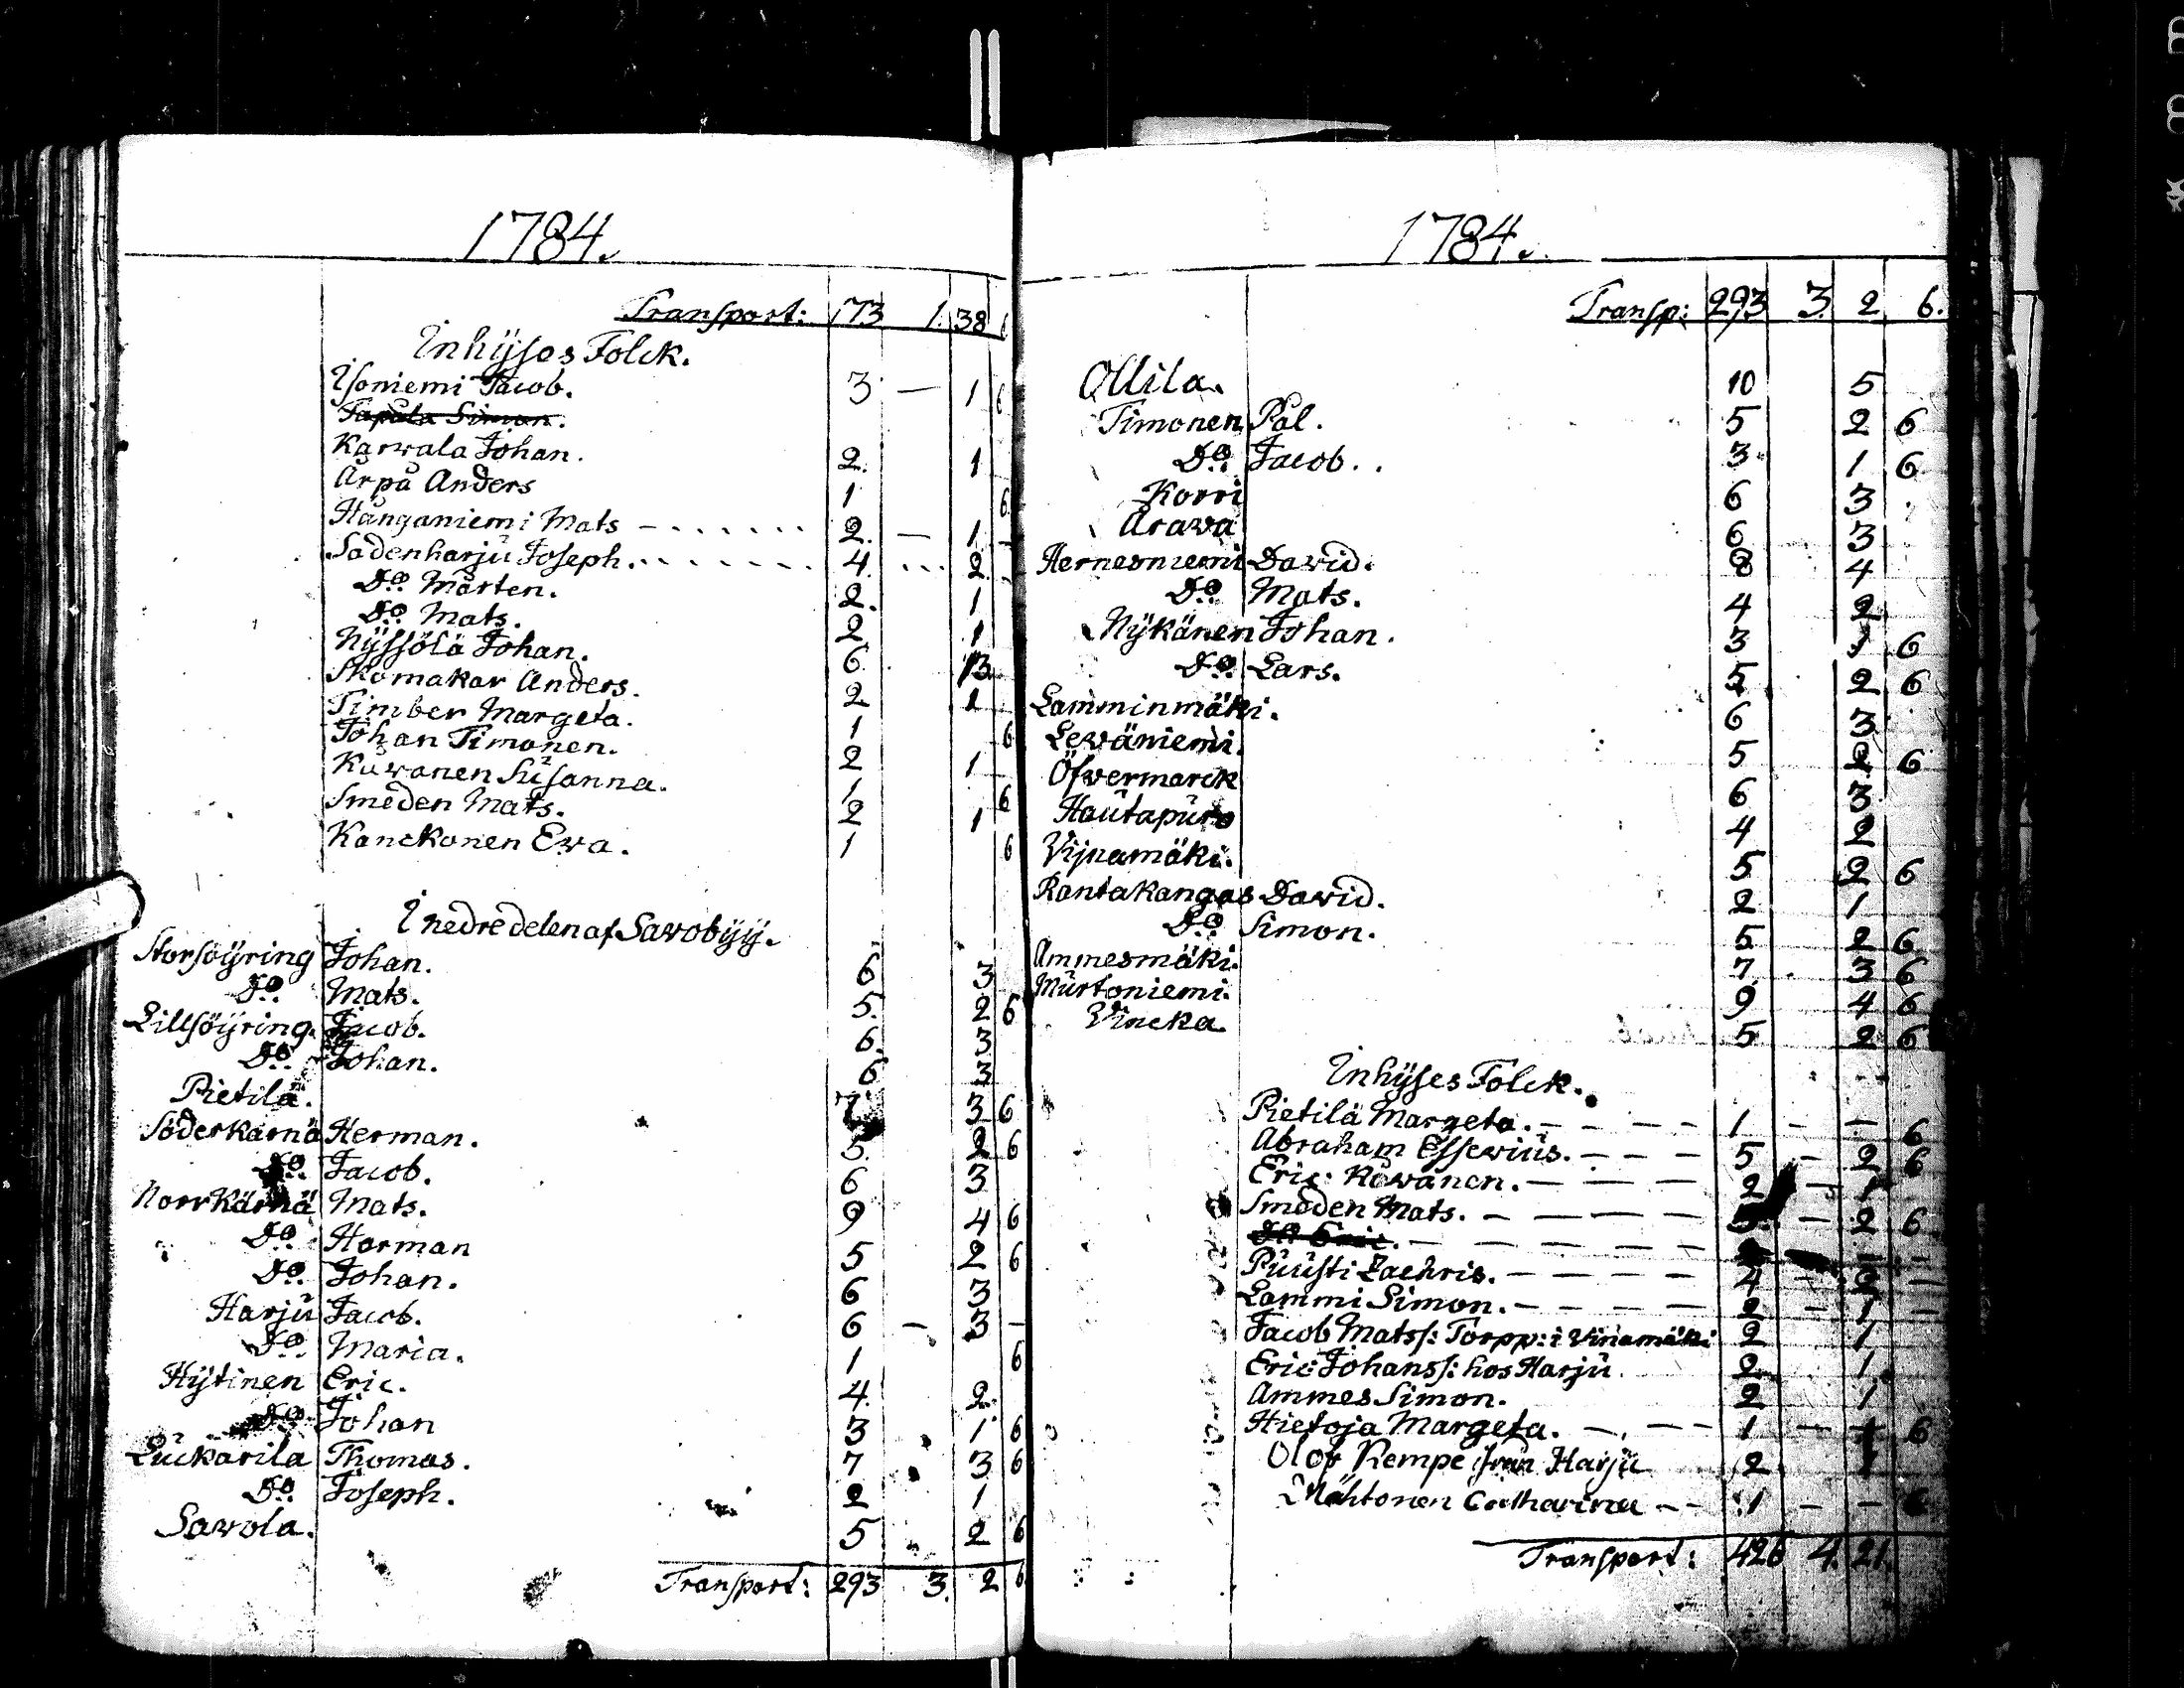 1784.
Transport: 173 1. 38 6
Inhyses Folck.
Isoniemi Jacob. 3 — 1 6
Tapila Simon.
Karwala Johan. 2. 1
Arpa Anders 1 6
Hanganiemi Mats - . . . . . . 2. — 1 -
Sadenharju Joseph. . . . . . . . 4. . . . 2.
Do. Mårten. 2. 1
Do. Mats. 2 1
Nyssölä Johan. 6 3
Skomakar Anders. 2 1
Timber Margeta. 1 6
Johan Timonen. 2 1
Kuwanen Susanna. 1 6
Smeden Mats. 2 1
Kanckonen Ewa. 1 6
I nedre delen af Sawobyy.
Storsöyring Johan. 6 3
Do. Mats. 5. 2 6
Lillsöyring. Jacob. 6. 3
Do. Johan. 6 3
Pietilä. 7 3 6
Söderkärnä Herman. 5 2 6
Do. Jacob. 6 3
Norrkärnä Mats. 9 4 6
Do. Herman 5 2 6
Do. Johan. 6 3
Harju Jacob. 6 — 3 -
Do. Maria. 1 6
Hytinen Eric. 4 2.
Do. Johan 3 1 6
Luckarila Thomas. 7 3 6
Do. Joseph. 2 1
Sawola. 5 2 6
Transport: 293 3. 2 6
1784.
Transp: 293 3. 2 6.
Ollila. 10 5
Timonen Pål. 5 2 6
Do. Jacob. . 3 1 6
Korri 6 3
Arawa 6 3
Hernesniemi David. 8 4
Do. Mats. 4 2
Nykänen Johan. 3 1 6
Do. Lars. 5 2 6
Lamminmäki. 6 3
Lewäniemi. 5 2 6
Öfvermarck 6 3
Hautapuro 4 2
Vijnamäki. 5 2 6
Rantakangas David. 2 1
Do. Simon. 5 2 6
Ammesmäki. 7 3 6
Murtoniemi. 9 4 6
Vincka. 5 2 6
Inhyses Folck.
Pietilä Margeta. - - - - 1 - — 6
Abraham Essewius. - - - 5 - 2 6
Eric Kowanen. — — — 2 - 1
Smeden Mats. — — — — 5 - 2 6
Do Eric. — — — — —
Puusti Zachris. — — — — 4 - 2 —
Lammi Simon. — — — — 2 - 1 —
Jacob Matss: Torpp: i Vinamäki 2 1
Eric Johanss: hos Harju 2 1
Ammes Simon. 2 1
Hietoja Margeta. — — — 1 - — 6
Olof Kempe från Harju 2 1
Mähtonen Catharina — - 1 - — 6
Transport: 426 4. 21.